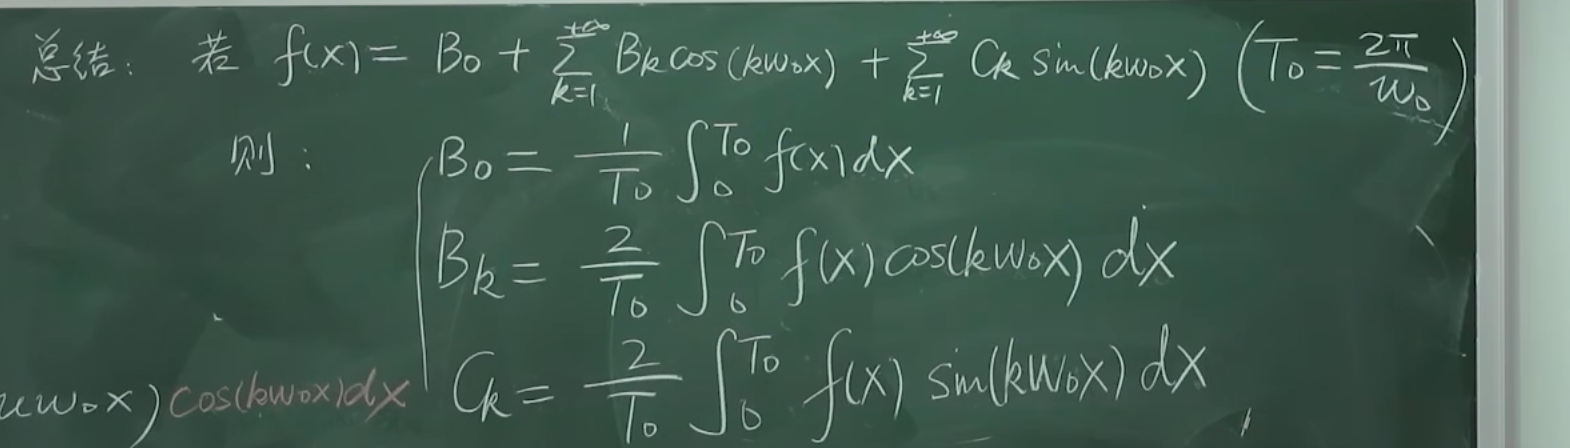 总结: 若 f(x) = B₀ + ∑_{k=1}^{+∞} B_k cos(kω₀x) + ∑_{k=1}^{+∞} C_k sin(kω₀x) (T₀ = 2π/ω₀)
则: B₀ = 1/T₀ ∫₀^{T₀} f(x)dx
B_k = 2/T₀ ∫₀^{T₀} f(x) cos(kω₀x) dx
C_k = 2/T₀ ∫₀^{T₀} f(x) sin(kω₀x) dx
ω₀x) cos(kω₀x)dx